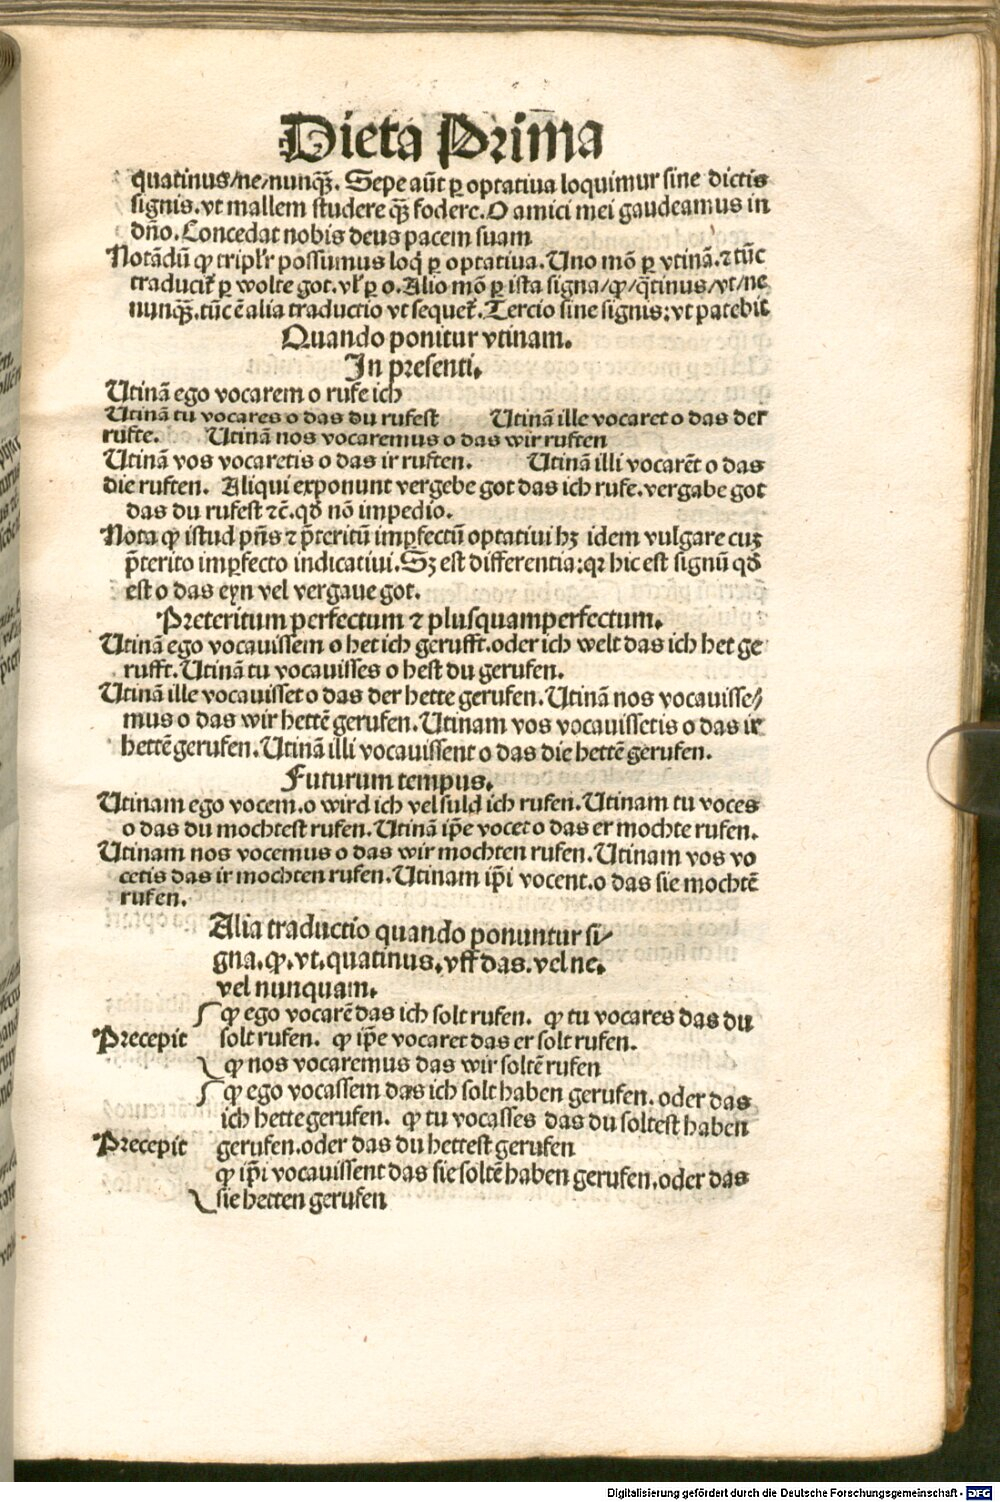 Dieta Prim̄a
quatinus/ne/nunqꝫ̄. Sepe aūt ꝑ optatiua loquimur sine dictis
signis. vt mallem studere qꝫ̄ fodere. O amici mei gaudeamus in
dño. Concedat nobis deus pacem suam
Notādū ꝙ triplr̄ possumus loq̇ ꝑ optatiua. Uno mō ꝑ vtinā. ⁊ tūc
traducit᷑ ꝑ wolte got. vl̓ ꝑ o. Alio mō ꝑ ista signa/ꝙ/q̄tinus/vt/ne
nunqꝫ̄. tūc ē alia traductio vt sequet᷑. Tercio sine signis: vt patebit
Quando ponitur vtinam.
In presenti.
Utinā ego vocarem o rufe ich
Utinā tu vocares o das du rufest Utinā ille vocaret o das der
rufte. Utinā nos vocaremus o das wir ruften
Utinā vos vocaretis o das ir ruften. Utinā illi vocarēt o das
die ruften. Aliqui exponunt vergebe got das ich rufe. vergabe got
das du rufest ⁊c̄. qd̄ nō impedio.
Nota ꝙ istud pn̄s ⁊ p̄teritū imꝑfectū optatiui hꝫ idem vulgare cuꝫ
p̄terito imꝑfecto indicatiui. Sꝫ est differentia: qꝛ hic est signū qd̄
est o das eyn vel vergaue got.
Preteritum perfectum ⁊ plusquamperfectum.
Utinā ego vocauissem o het ich gerufft. oder ich welt das ich het ge
rufft. Utinā tu vocauisses o hest du gerufen.
Utinā ille vocauisset o das der hette gerufen. Utinā nos vocauisse/
mus o das wir hettē gerufen. Utinam vos vocauissetis o das ir
hettē gerufen. Utinā illi vocauissent o das die hettē gerufen.
Futurum tempus.
Utinam ego vocem. o wird ich vel suld ich rufen. Utinam tu voces
o das du mochtest rufen. Utinā ip̄e vocet o das er mochte rufen.
Utinam nos vocemus o das wir mochten rufen. Utinam vos vo
cetis das ir mochten rufen. Utinam ip̄i vocent. o das sie mochtē
rufen.
Alia traductio quando ponuntur si/
gna. ꝙ. vt. quatinus. vff das. vel ne.
vel nunquam.
ꝙ ego vocarē das ich solt rufen. ꝙ tu vocares das du
Precepit solt rufen. ꝙ ip̄e vocaret das er solt rufen.
ꝙ nos vocaremus das wir soltē rufen
ꝙ ego vocassem das ich solt haben gerufen. oder das
ich hette gerufen. ꝙ tu vocasses das du soltest haben
Precepit gerufen. oder das du hettest gerufen
ꝙ ip̄i vocauissent das sie soltē haben gerufen. oder das
sie hetten gerufen
Digitalisierung gefördert durch die Deutsche Forschungsgemeinschaft - DFG